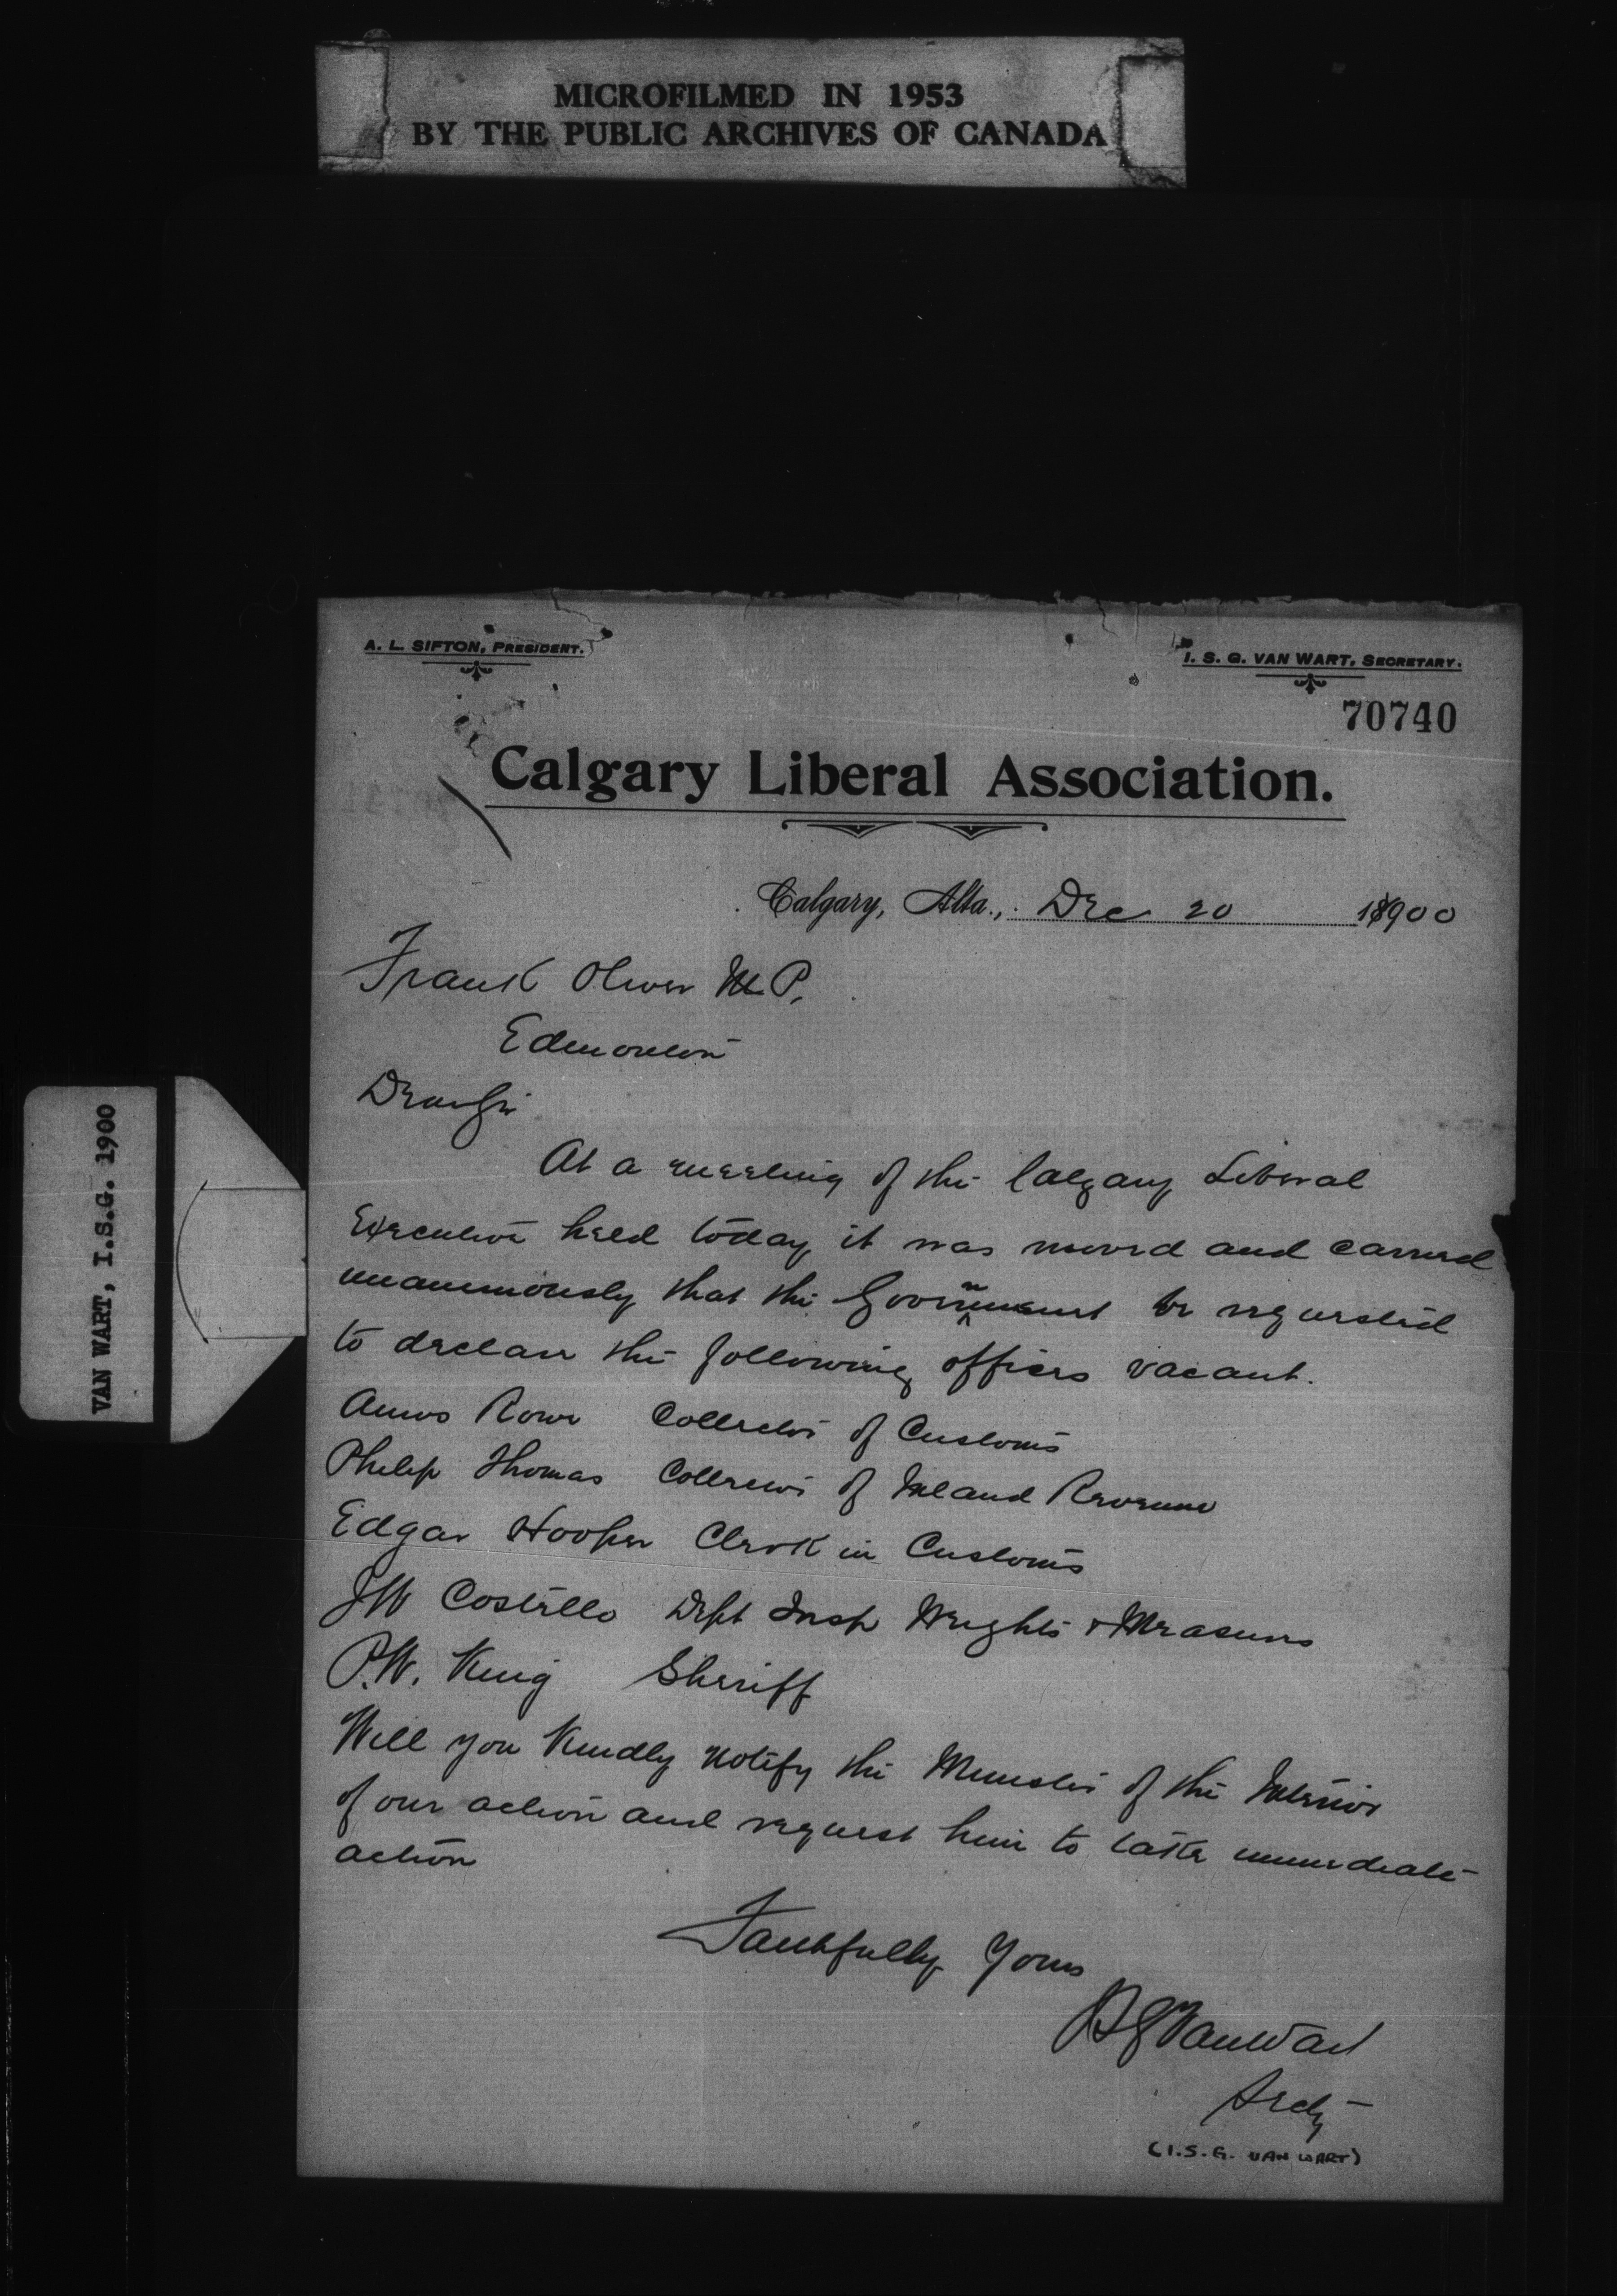 MICROFILMED IN 1953
BY THE PUBLIC ARCHIVES OF CANADA
A. L. SIFTON, PRESIDENT.
I. S. G. VAN WART, SECRETARY.
70740
Calgary Liberal Association.
Calgary, Alta., Dec 20 1900
Frank Oliver M.P.
Edmonton
Dear Sir
At a meeting of the Calgary Liberal
Executive held today it was moved and carried
unanimously that the Government be requested
to declare the following offices vacant.
Amos Rowe Collector of Customs
Philip Thomas Collector of Inland Revenue
Edgar Hooper Clerk in Customs
JW Costello Dept Insp Weights & Measures
P.W. King Sheriff
Will you kindly notify the Minister of the Interior
of our action and request him to take immediate
action
Faithfully Yours
ISG VanWart
Secty
(I.S.G. VAN WART)
VAN WART, I.S.G. 1900